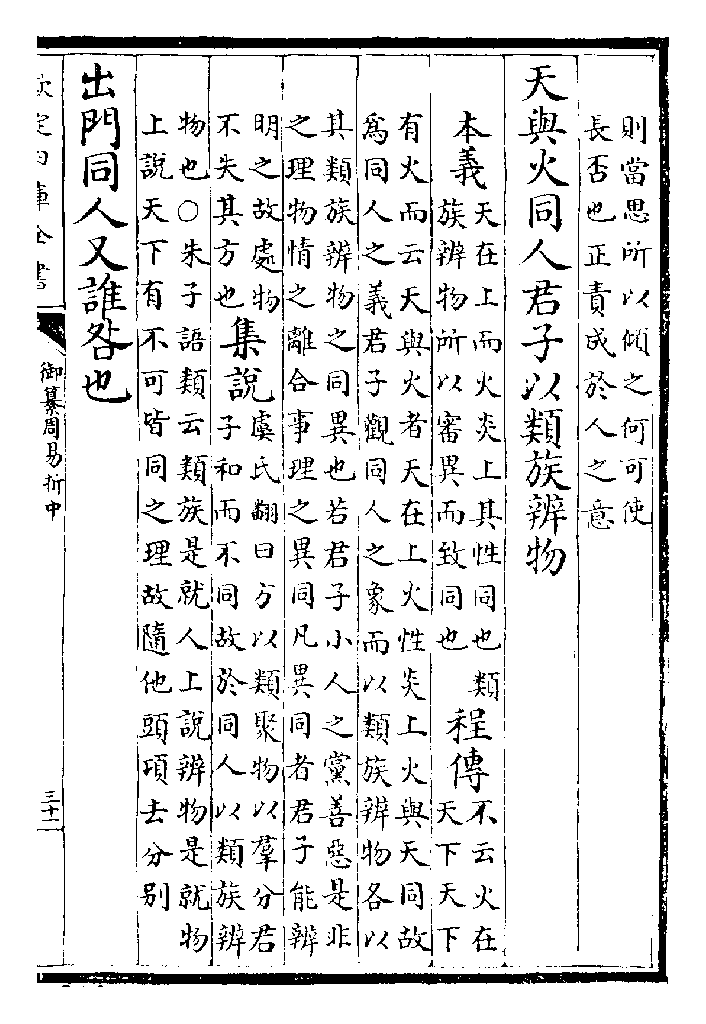 則當思所以傾之何可使
長否也正責成於人之意
天與火同人君子以類族辨物
本義
天在上而火炎上其性同也類
族辨物所以審異而致同也
程傳
不云火在
天下天下
有火而云天與火者天在上火性炎上火與天同故
爲同人之義君子觀同人之象而以類族辨物各以
其類族辨物之同異也若君子小人之黨善惡是非
之理物情之離合事理之異同凡異同者君子能辨
明之故處物
不失其方也
集說
虞氏翻曰方以類聚物以羣分君
子和而不同故於同人以類族辨
物也○朱子語類云類族是就人上說辨物是就物
上說天下有不可皆同之理故隨他頭項去分別
出門同人又誰咎也
欽定四庫全書
御纂周易折中
三十二